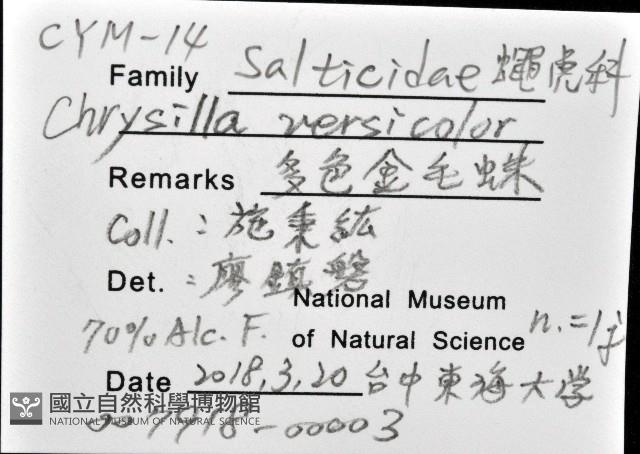 CYM-14
Family Salticidae 蠅虎科
Chrysilla versicolor
Remarks 多色金毛蛛
Coll. : 施秉紘
Det. : 廖鎮磐
National Museum
70% Alc. F. of Natural Science n.=1j
Date 2018,3,20 台中東海大学
國立自然科學博物館
NATIONAL MUSEUM OF NATURAL SCIENCE
-00003